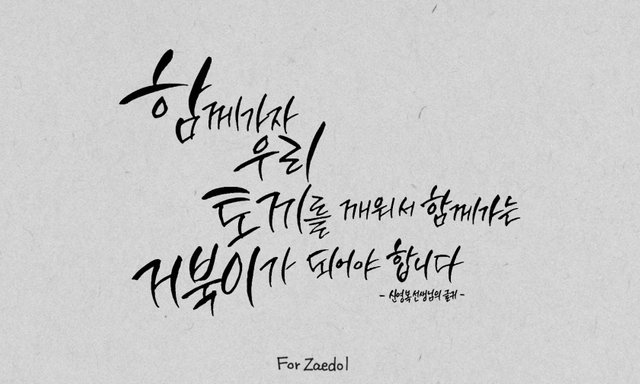 함께가자
우리
토끼를 깨워서 함께가는
거북이가 되어야 합니다
- 신영복 선생님의 글귀 -
For Zaedol